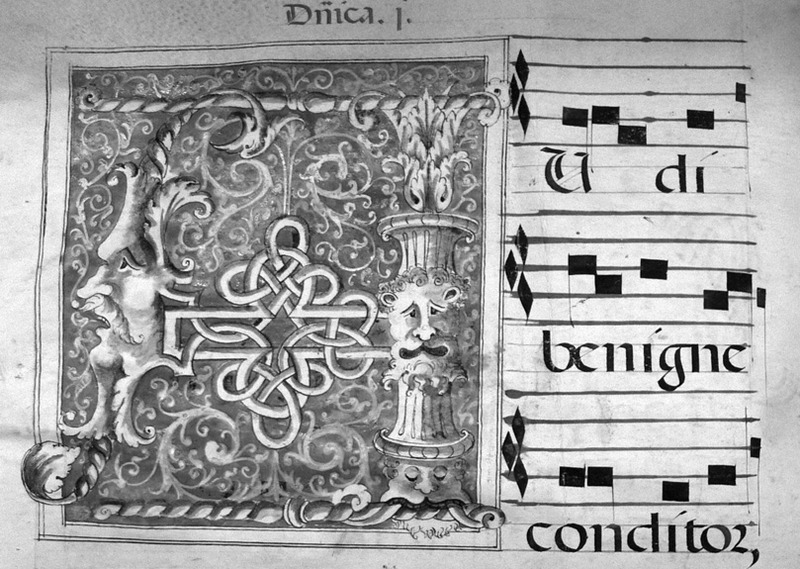 Dñica. j.
AUdí
benígne
condítor,